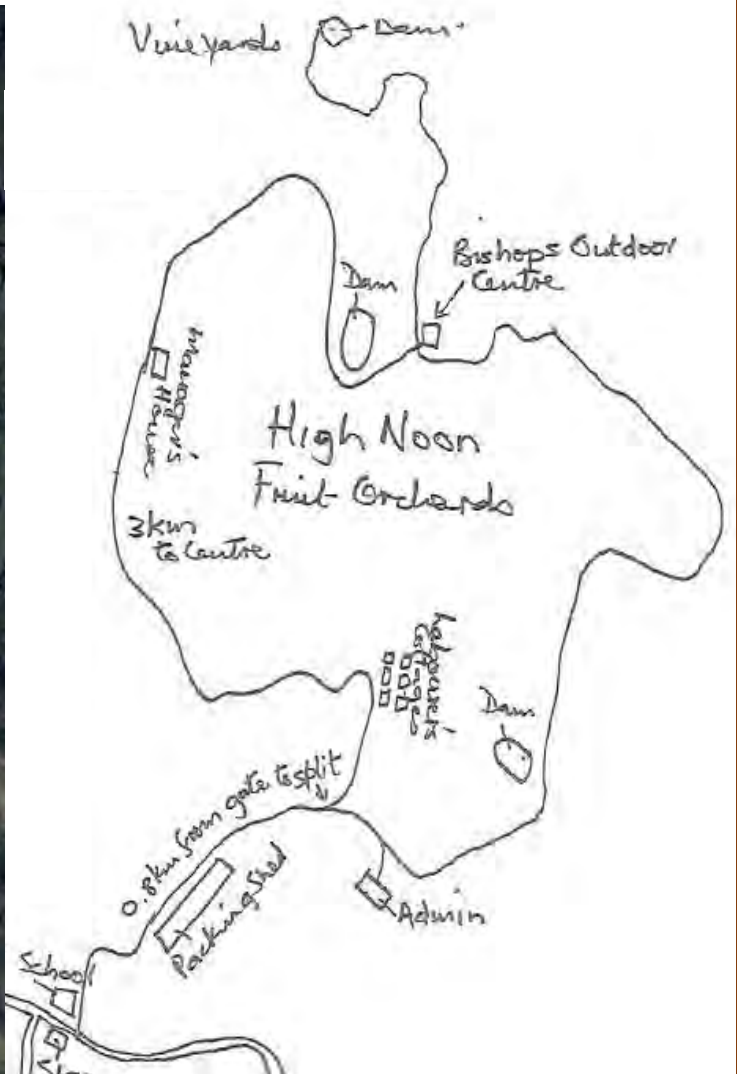 Vineyards
Dam
Bishops Outdoor
Centre
Dam
Manager's
House
High Noon
Fruit Orchards
3km
to Centre
Labourers'
Cottages
Dam
0.8km from gate to split
Packing Shed
Admin
School